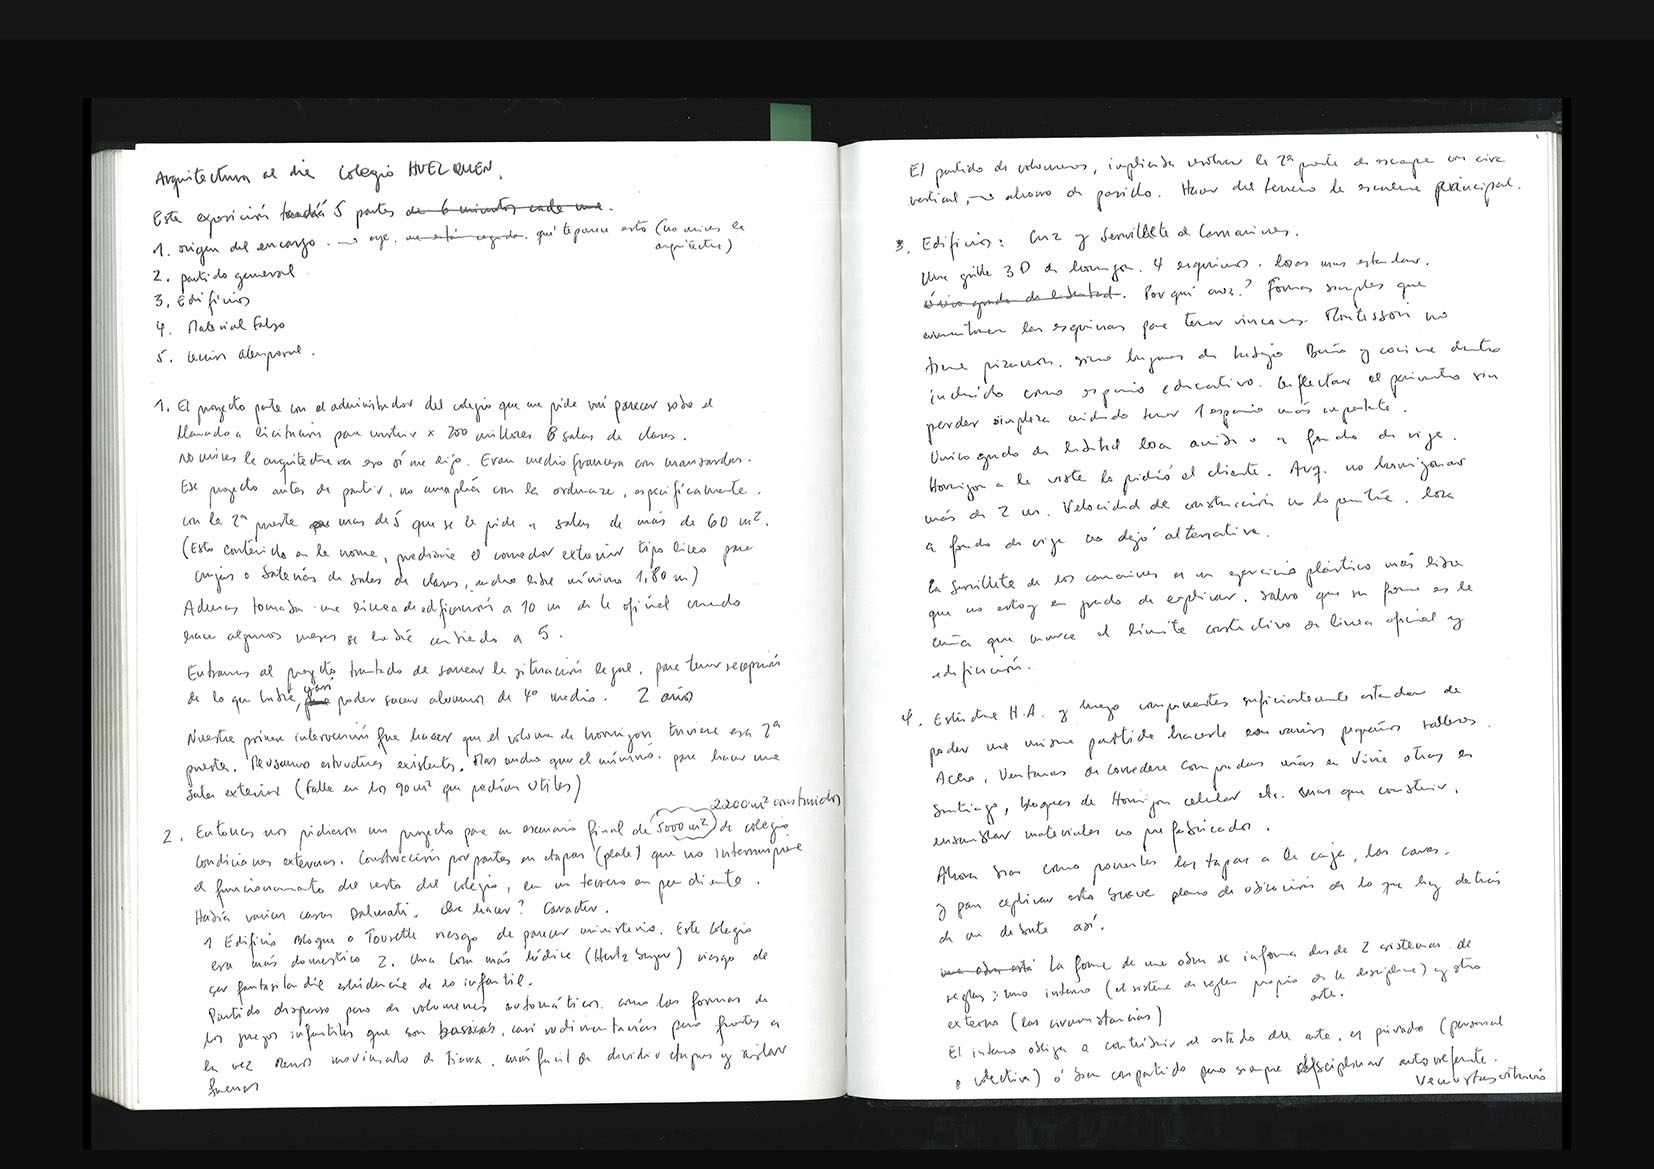 Arquitectura al día Colegio HUELQUEN.
Esta exposición tendrá 5 partes de 6 minutos cada una.
1. origen del encargo. qué te parece esto (no mires la
arquitectura)
2. partido general
3. Edificios
4. Material
5. atemporal.
1. El proyecto parte con el administrador del colegio que me pide mi parecer sobre el
llamado a licitación para construir x 200 millones 8 salas de clases.
No mires la arquitectura eso sí me dijo. Eran medio francesa con mansardas.
Ese proyecto antes de partir, no cumplía con la ordenanza, específicamente.
con la 2ª puerta mas de 5 que se le pide a salas de más de 60 m².
(Esto contenido en la norma, el corredor exterior tipo liceo para
crujías o baterías de salas de clases, ancho libre mínimo 1,80 m)
Además tomaba una línea de edificación a 10 m de la oficial cuando
hace algunos meses se había cambiado a 5.
Entramos al proyecto tratando de sanear la situación legal, para tener recepción
de lo que había, para poder sacar alumnos de 4º medio. 2 años
Nuestra primera intervención fue hacer que el volumen de hormigón tuviera esa 2ª
puerta. Reusamos estructuras existentes. Mas ancho que el mínimo. para hacer una
sala exterior (Falta en los 90 m² que pedían útiles)
2200 m² construidos
2. Entonces nos pidieron un proyecto para un escenario final de 5000 m² de colegio
condiciones externas. Construcción por partes en etapas (plata) que no interrumpiera
el funcionamiento del resto del colegio, en un terreno en pendiente.
Había varias casas Dalmati. Que hacer? Caracter.
1 Edificio Bloque o riesgo de parecer ministerio. Este colegio
era más domestico 2. Una más lúdica (Hertz ) riesgo de
ser de lo infantil.
Partido disperso pero de volumenes automáticos. como las formas de
los juegos infantiles que son basicas, casi rudimentarias pero fuertes a
la vez Menos movimiento de tierra, más facil de dividir etapas y aislar
faenas
El partido de volumenes, implicaba resolver la 2ª puerta de escape con circ
vertical, ahorro de pasillo. Hacer del terreno la escalera principal.
3. Edificios: Cruz y Servilleta de Camarines.
Una grilla 3D de hormigon. 4 esquinas. losas mas estandar.
único grado de libertad. Por qué cruz? Formas simples que
las esquinas para tener rincones Montessori no
tiene pizarron. sino lugares de trabajo Baño y cocina dentro
incluido como espacio educativo. Inflectar el perimetro sin
perder simpleza cuidado tener 1 espacio más importante.
Unico grado de libertad losa arriba o a fondo de viga.
Hormigon a la vista lo pidió el cliente. Arq. no hormigonar
más de 2 m. Velocidad de construcción no lo permitía. losa
a fondo de viga no dejó alternativa.
La servilleta de los camarines es un ejercicio plástico más libre
que no estoy en grado de explicar. Salvo que su forma es la
cuña que marca el límite constructivo de línea oficial y
edificación.
4. Estructura H.A. y luego componentes suficientemente estandar de
poder una misma partida hacerla con varios pequeños talleres.
Acero, Ventanas de corredera compradas unas en Viña otras en
Santiago, bloques de Hormigon celular etc. Mas que construir,
ensamblar materiales no prefabricados.
Ahora son como ponerles las tapas a la caja, las caras.
y para explicar esto breve plano de ubicación de lo que hay detrás
de un debate así.
una obra está La forma de una obra se informa desde 2 sistemas de
reglas: uno interno (el sistema de reglas propio de la disciplina) y otro
arte.
externo (las circunstancias)
El interno obliga a contribuir al estado del arte, es privado (personal
o colectivo) ó bien compartido pero siempre disciplinar autoreferente.